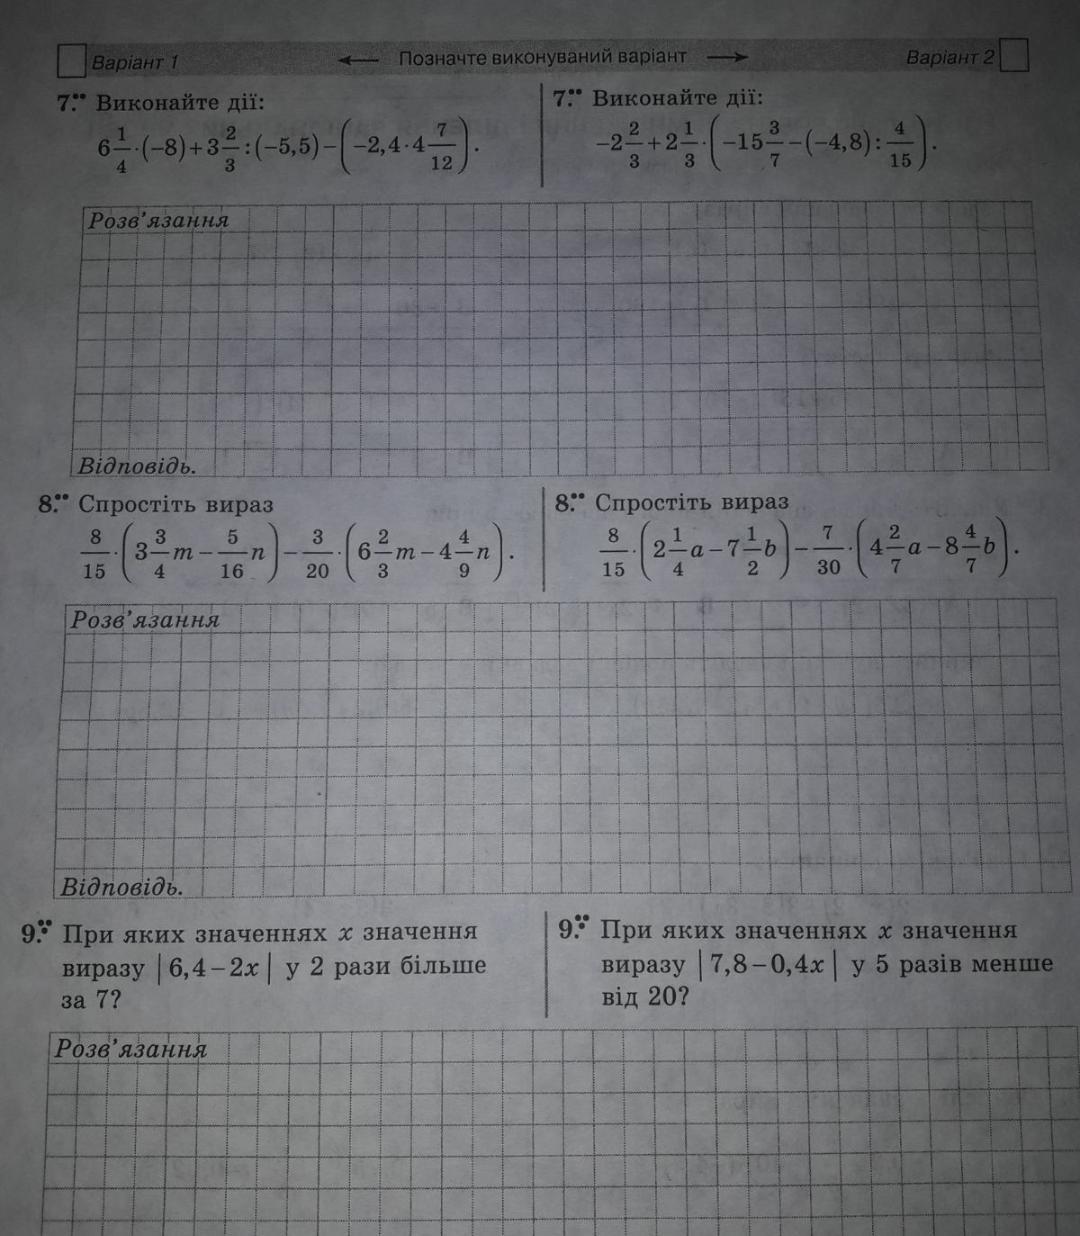 Варіант 1 ← Позначте виконуваний варіант → Варіант 2
7.•• Виконайте дії:
6 1/4 · (−8) + 3 2/3 : (−5,5) − (−2,4 · 4 7/12).
7.•• Виконайте дії:
−2 2/3 + 2 1/3 · (−15 3/7 − (−4,8) : 4/15).
Розв’язання
Відповідь.
8.•• Спростіть вираз
8/15 · (3 3/4 m − 5/16 n) − 3/20 · (6 2/3 m − 4 4/9 n).
8.•• Спростіть вираз
8/15 · (2 1/4 a − 7 1/2 b) − 7/30 · (4 2/7 a − 8 4/7 b).
Розв’язання
Відповідь.
9.•• При яких значеннях x значення
виразу |6,4 − 2x| у 2 рази більше
за 7?
9.•• При яких значеннях x значення
виразу |7,8 − 0,4x| у 5 разів менше
від 20?
Розв’язання